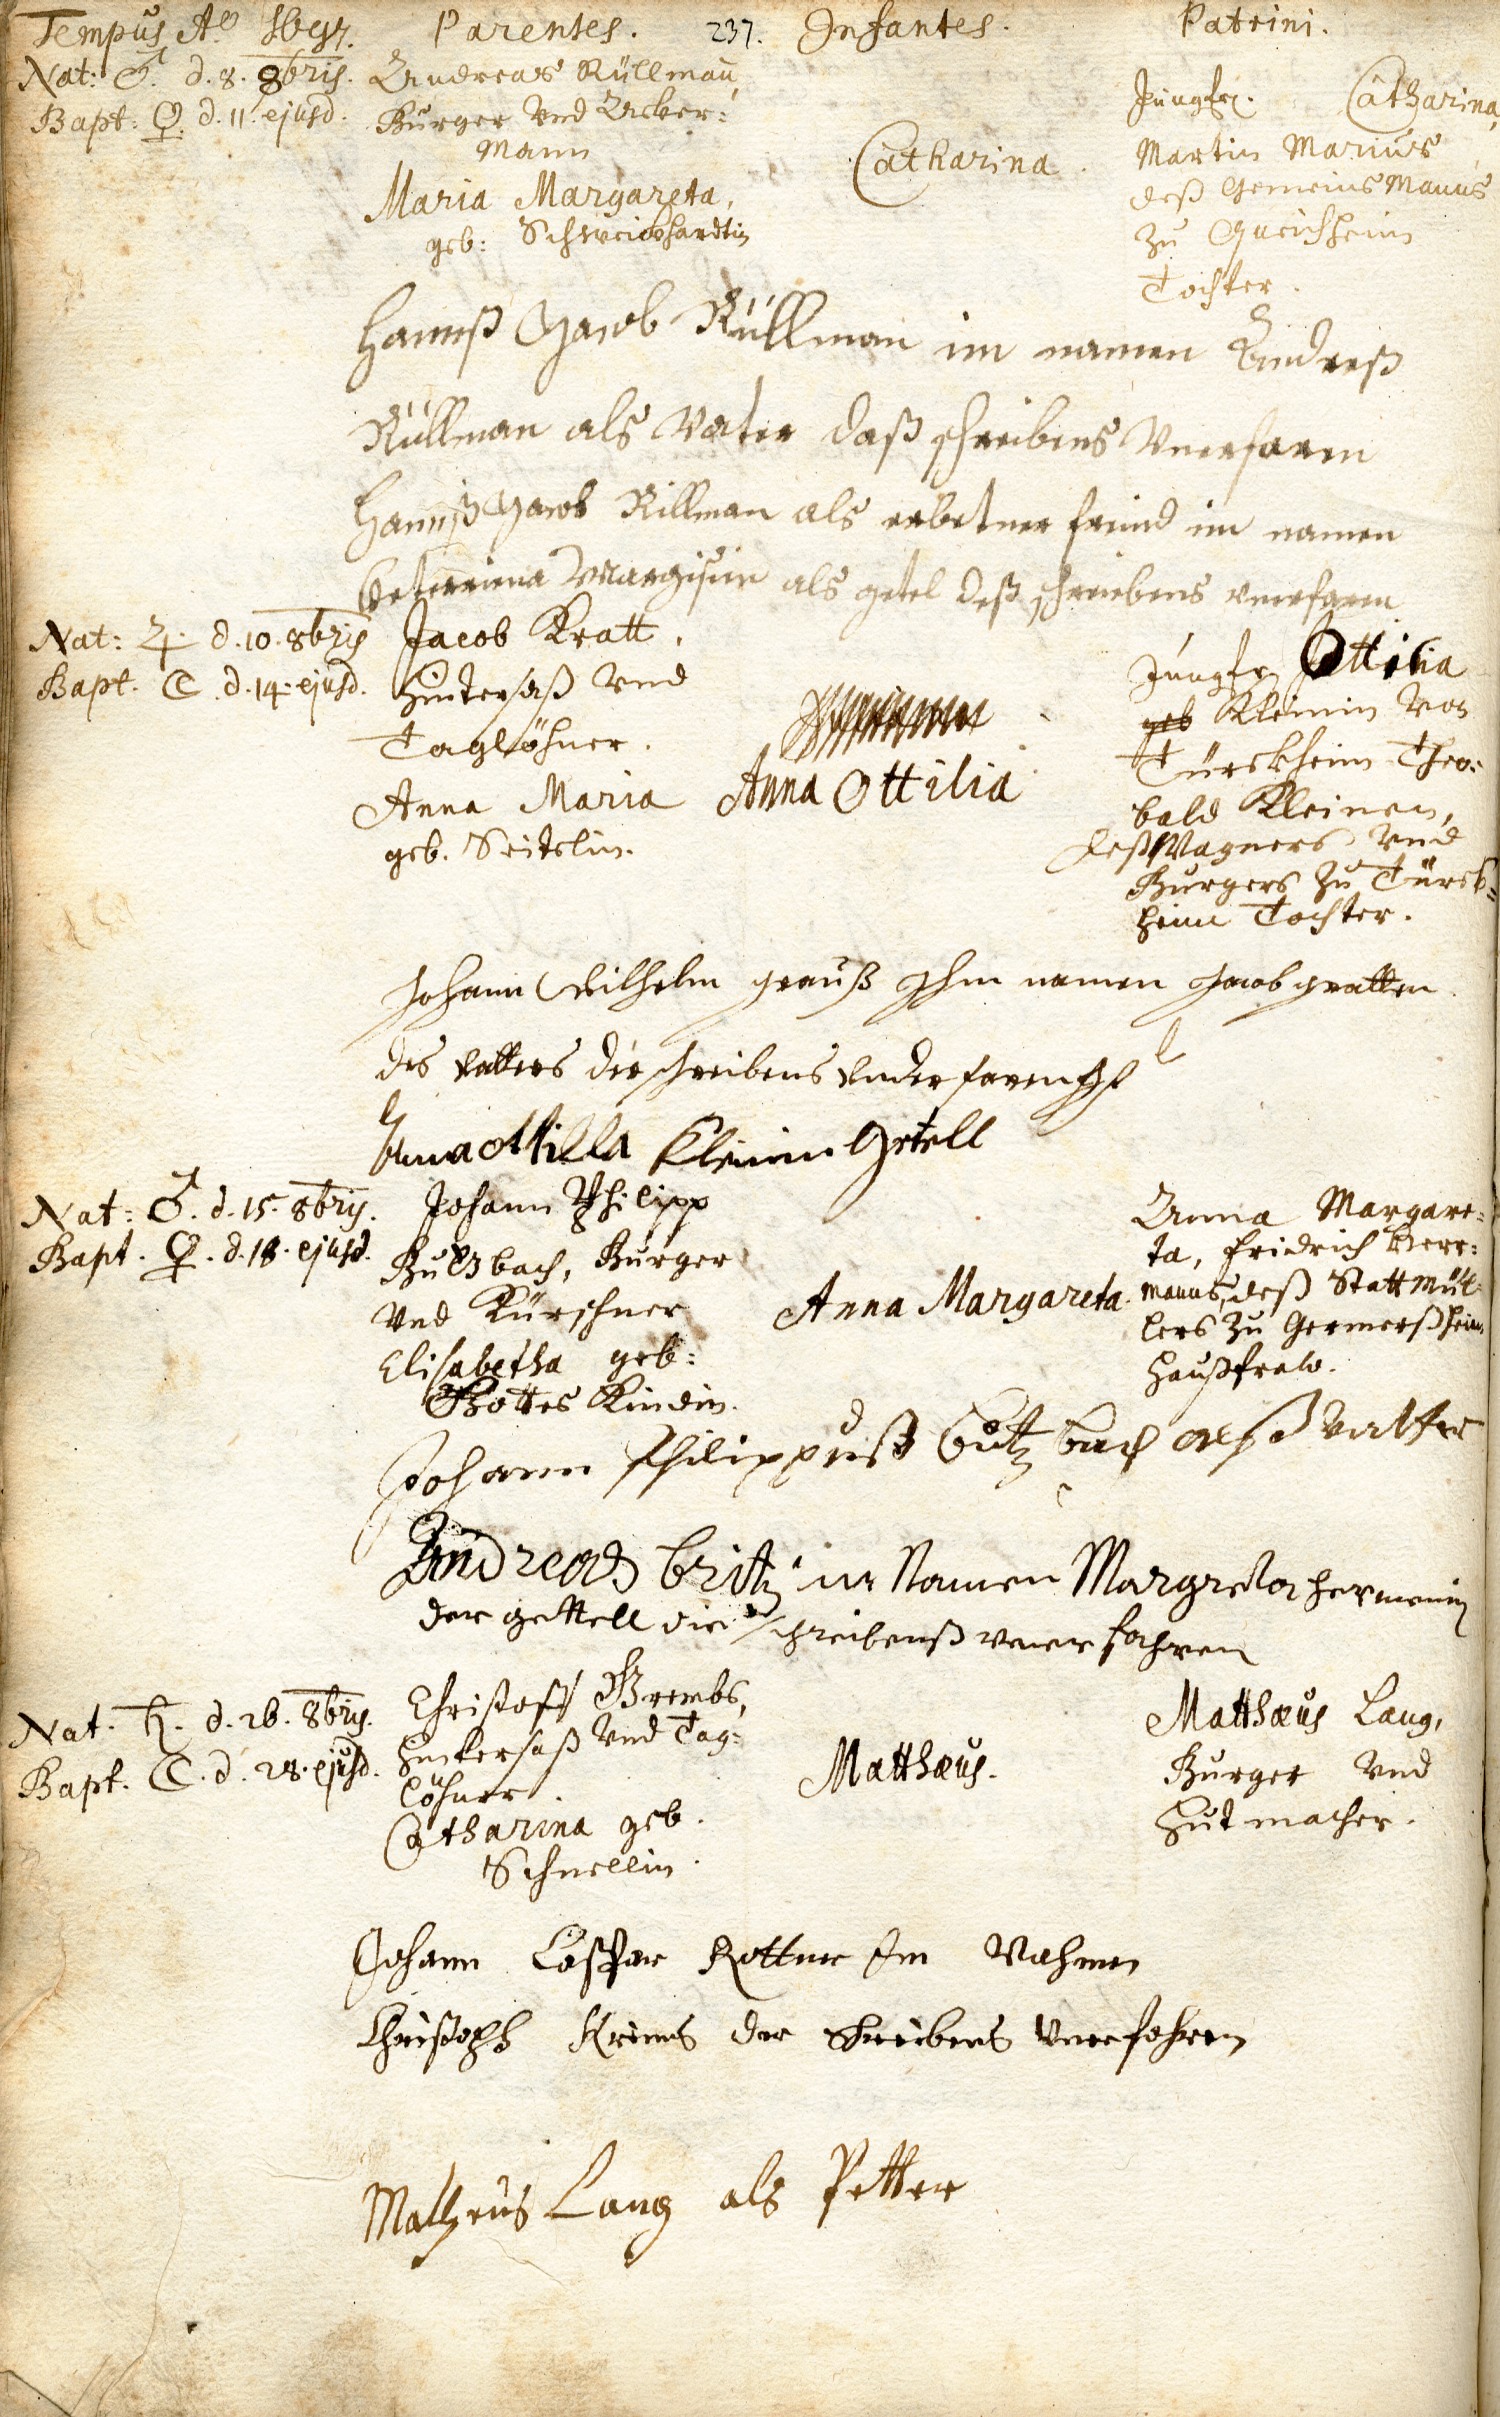 Tempus Aō
Parentes.
237.
Infantes.
Patrini.
Nat: ♂. d. 8. 8bris.
Bapt: ♀. d. 11. ejusd.
Andreas Rüllmañ,
Burger Vnd Acker:
Mann
Maria Margareta,
geb: Schweickhardtin
Catharina.
Jungfr. Catharina,
Martin Marius
deß Gemeins Manns
zu Queichheim
Tochter.
Hannß Jacob Rüllman im namen Andreß
Rüllman als Vater daß schreibens Vnerfaren
Hannß Jacob Rillman als erbetner freind im namen
als getel deß schreibens vnerfaren
Nat: ♃. d. 10. 8bris
Bapt. ☾. d. 14. ejusd.
Jacob Kratt,
Hintersaß Vnd
Taglöhner.
Anna Maria
geb. Seitelin.
Anna Ottilia
Jungfr. Ottilia
geb Kleinin Von
Türckheim Theo:
bald Kleinen,
deß Wagners Vnd
Burgers zu Türck=
heim Tochter.
Johann Wilhelm Krauß Ihm namen Jacob gratten
des vatters der schreibens
Anna Ottilla Kleinin Getell
Nat: ♂. d. 15. 8bris.
Bapt. ♀. d. 18. ejusd.
Johann Philipp
Butzbach, Burger
Vnd Kürschner
Elisabetha geb:
Gottes Kindin.
Anna Margareta.
Anna Margare=
ta, Fridrich Herr=
manns, deß Statt Mül=
lers zu Germerßheim
Haußfraw.
Johann Philippuß Butzbach alß Vatter
Andreas Britz in Namen Margreta Hermenin
der gettell die schreibenß vnerfahren
Nat. ♄. d. 26. 8bris.
Bapt. ☾. d. 28. ejusd.
Christoff Grembs,
Hintersaß Vnd Tag=
löhner.
Catharina geb.
Schnellin.
Matthæus.
Matthæus Lang,
Burger Vnd
Hutmacher.
Johann Caspar Rottner Im Nahmen
Christoph Krems der Schreibens Vnerfahren
Matheus Lang als Petter